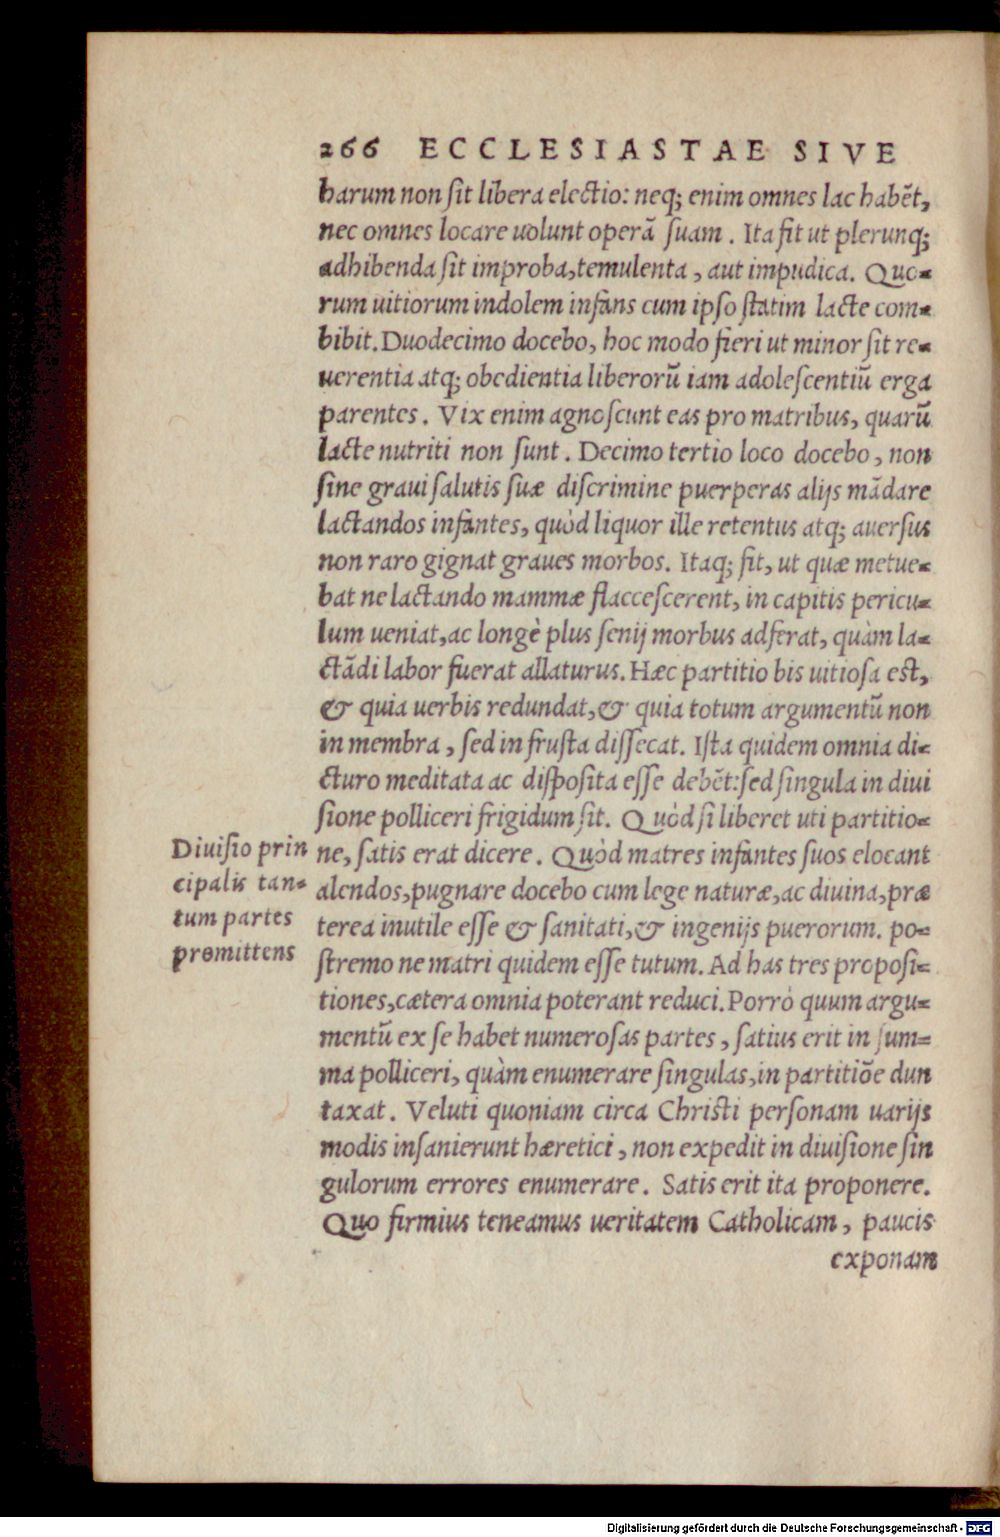 266 ECCLESIASTAE SIVE
harum non ſit libera electio: neq; enim omnes lac habẽt,
nec omnes locare uolunt operã ſuam. Ita fit ut plerunq;
adhibenda ſit improba, temulenta, aut impudica. Quo-
rum uitiorum indolem infans cum ipſo ſtatim lacte com-
bibit. Duodecimo docebo, hoc modo fieri ut minor ſit re-
uerentia atq; obedientia liberorũ iam adoleſcentiũ erga
parentes. Vix enim agnoſcunt eas pro matribus, quarũ
lacte nutriti non ſunt. Decimo tertio loco docebo, non
ſine graui ſalutis ſuæ diſcrimine puerperas alijs mãdare
lactandos infantes, quòd liquor ille retentus atq; auerſus
non raro gignat graues morbos. Itaq; fit, ut quæ metue-
bat ne lactando mammæ flacceſcerent, in capitis pericu-
lum ueniat, ac longè plus ſenij morbus adferat, quàm la-
ctãdi labor fuerat allaturus. Hæc partitio bis uitioſa est,
& quia uerbis redundat, & quia totum argumentũ non
in membra, ſed in fruſta diſſecat. Iſta quidem omnia di-
cturo meditata ac diſpoſita eſſe debẽt: ſed ſingula in diui
ſione polliceri frigidum ſit. Quòd ſi liberet uti partitio-
ne, ſatis erat dicere. Quòd matres infantes ſuos elocant
alendos, pugnare docebo cum lege naturæ, ac diuina, præ
terea inutile eſſe & ſanitati, & ingenijs puerorum. po-
ſtremo ne matri quidem eſſe tutum. Ad has tres propoſi-
tiones, cætera omnia poterant reduci. Porrò quum argu-
mentũ ex ſe habet numeroſas partes, ſatius erit in ſum-
ma polliceri, quàm enumerare ſingulas, in partitiõe dun
taxat. Veluti quoniam circa Chriſti perſonam uarijs
modis inſanierunt hæretici, non expedit in diuiſione ſin
gulorum errores enumerare. Satis erit ita proponere.
Quo firmius teneamus ueritatem Catholicam, paucis
exponam
Diuiſio prin
cipalis tan-
tum partes
promittens
Digitalisierung gefördert durch die Deutsche Forschungsgemeinschaft - DFG